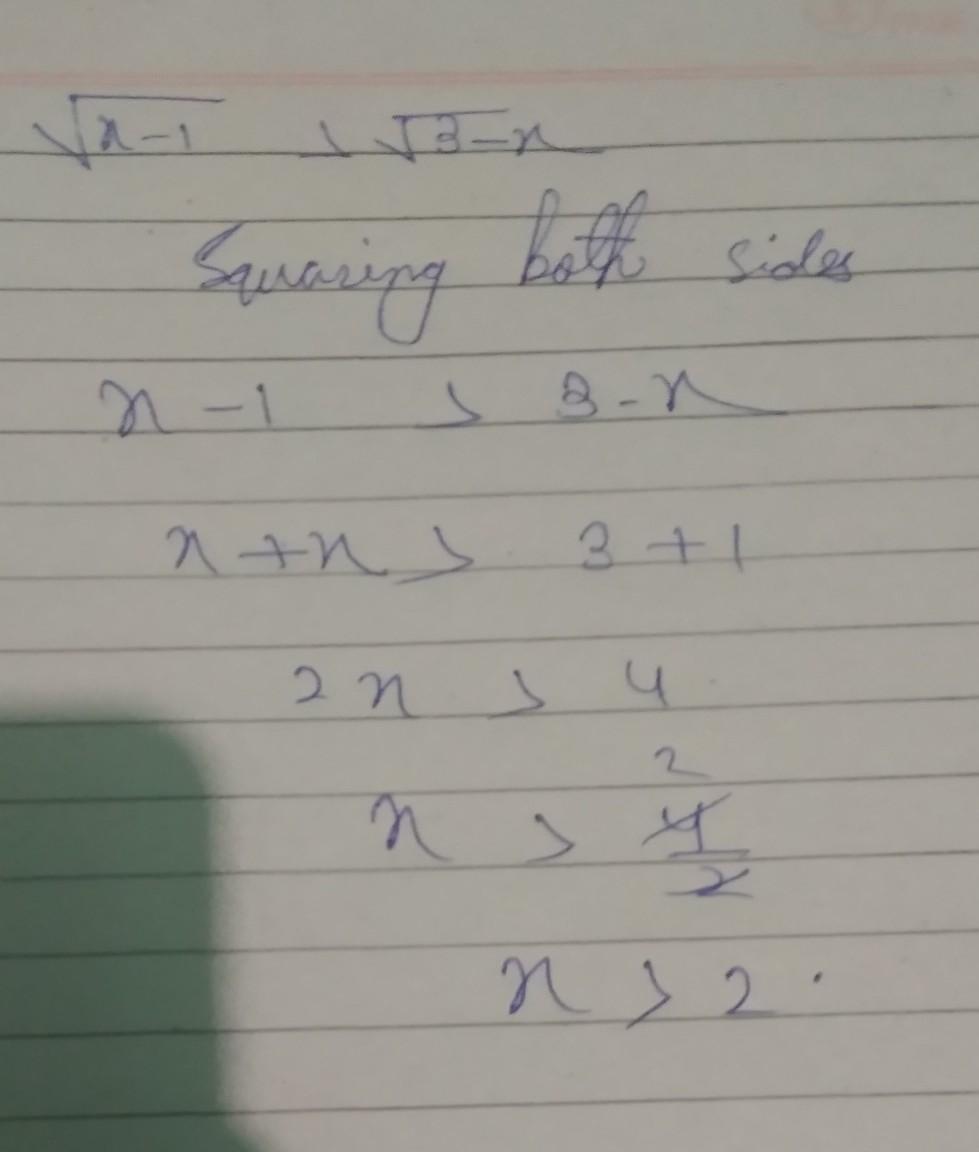 √x-1 > √3-x
Squaring both sides
x - 1 > 3 - x
x + x > 3 + 1
2x > 4
x > 4/2 2
x > 2.